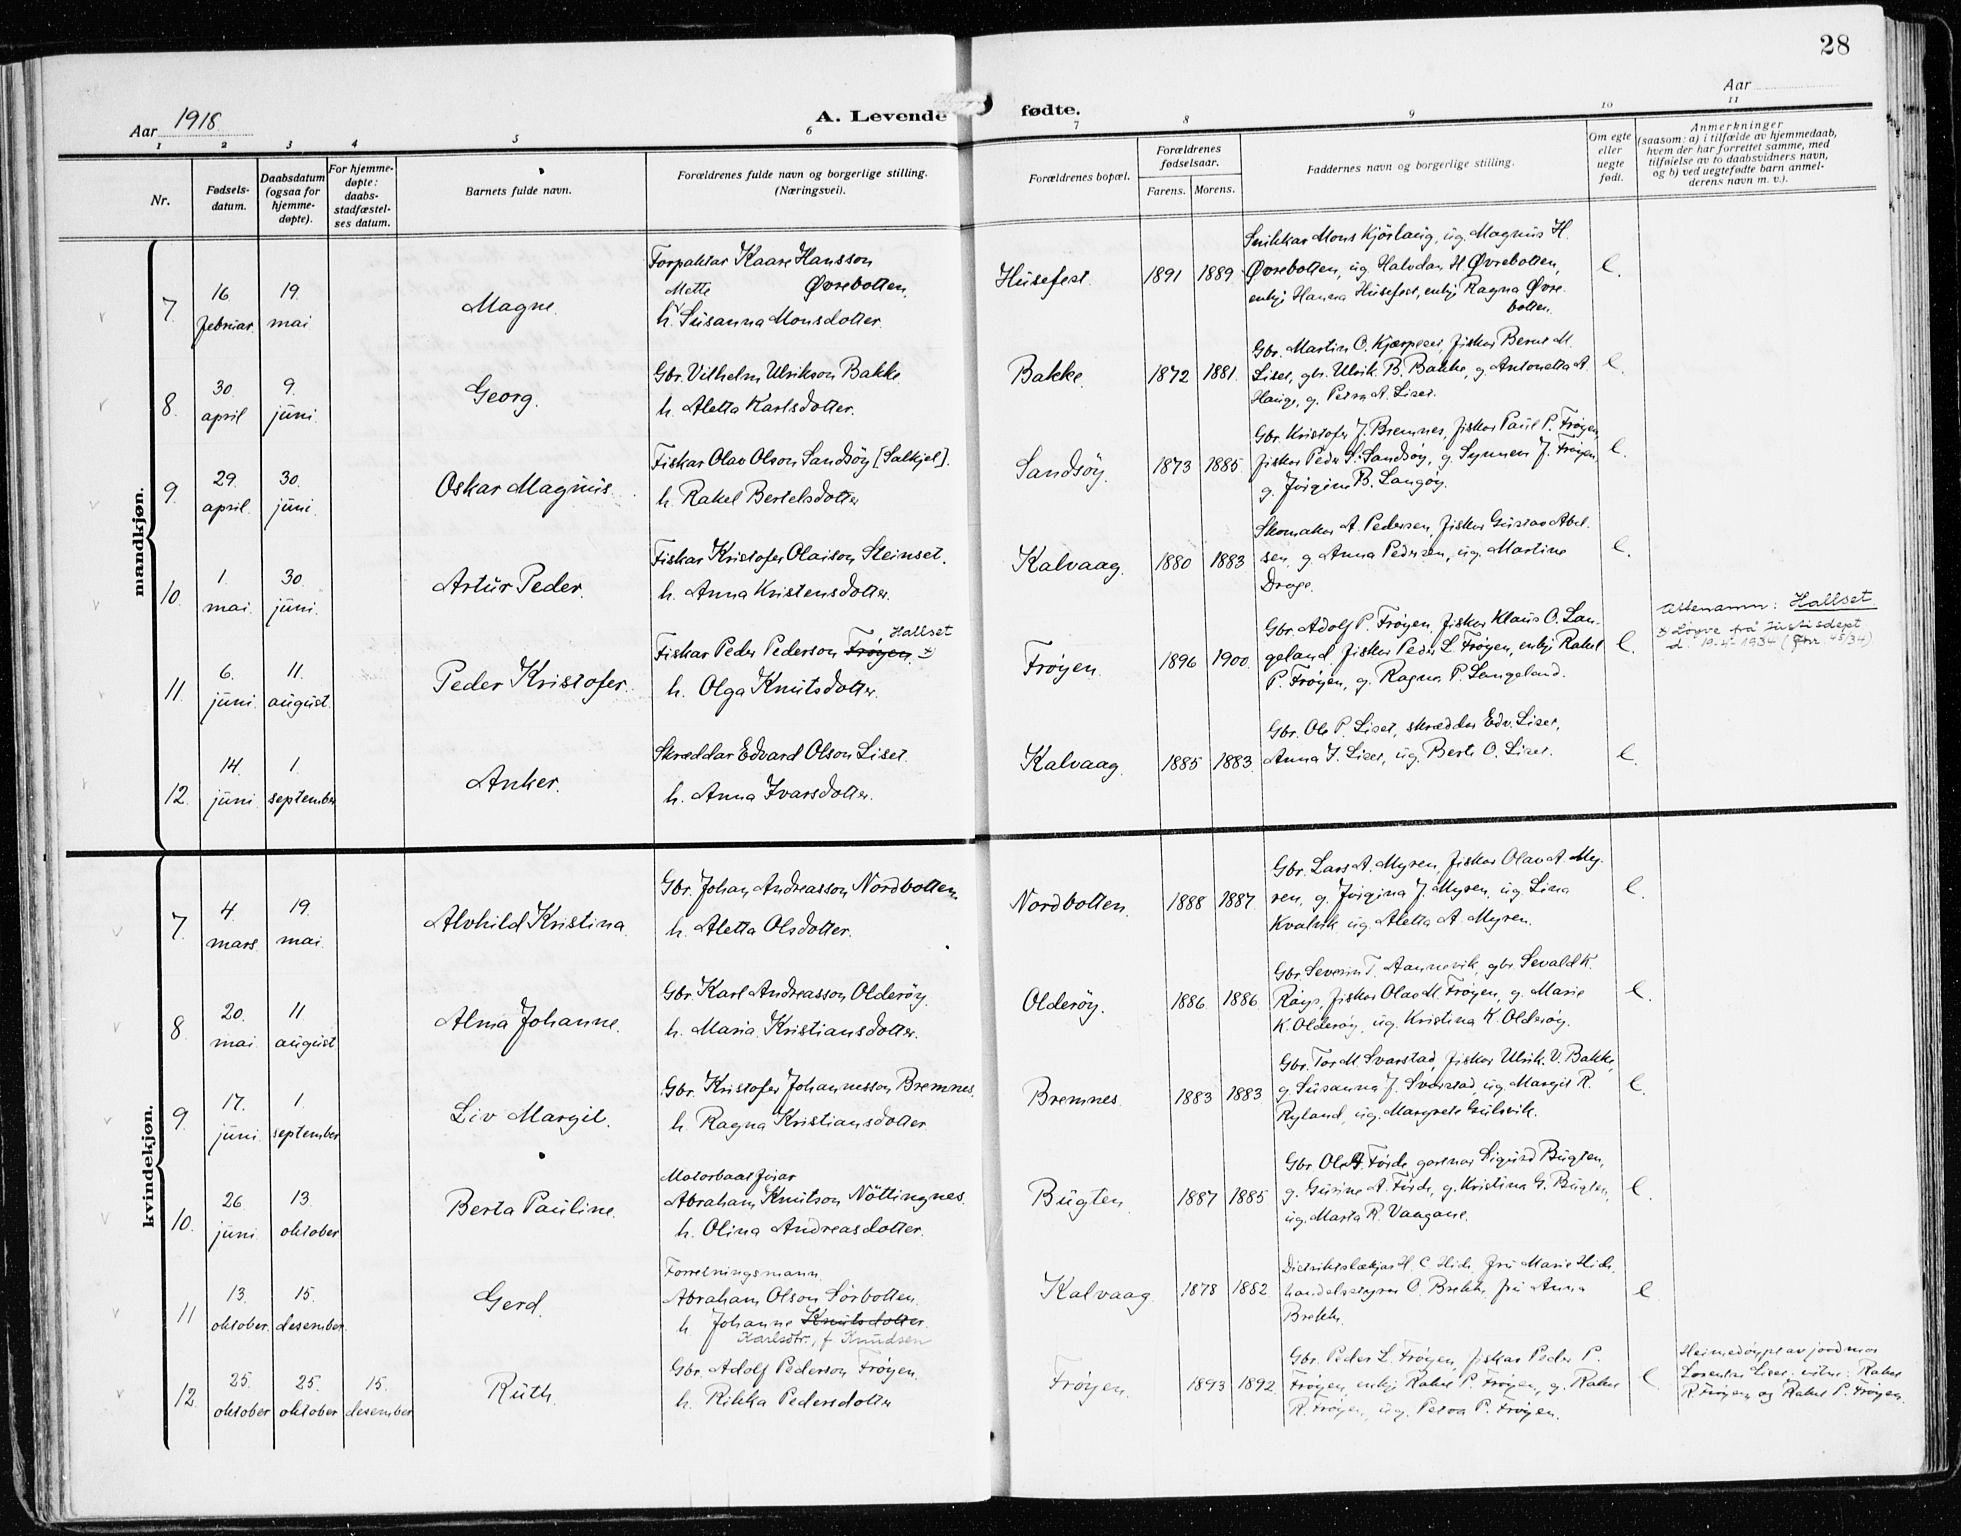 28
Aar 1918
A. Levende fødte.
Aar
1 2 3 4 5 6 7 8 9 10 11
Nr.
Fødsels-
datum.
Daabsdatum
(ogsaa for
hjemme-
døpte).
For hjemme-
døpte:
daabs-
stadfæstel-
ses datum.
Barnets fulde navn.
Forældrenes fulde navn og borgerlige stilling.
(Næringsvei).
Forældrenes bopæl.
Forældrenes
fødselsaar.
Farens. Morens.
Faddernes navn og borgerlige stilling.
Om egte
eller
uegte
født.
Anmerkninger
(saasom: a) i tilfælde av hjemmedaab,
hvem der har forrettet samme, med
tilføielse av to daabsvidners navn,
og b) ved uegtefødte barn anmel-
derens navn m. v.).
mandkjøn.
7.
16 februar.
19. mai.
Magne.
Forpaktar Kaare Hansson
Øvrebotten,
Mette
h. Susanna Monsdotter.
Husefest.
1891 1889
Snikkar Mons Kjørlaug, ug. Magnus H.
Øvrebotten, ug. Halvdan H. Øvrebotten,
enkje Hanna Husefest, enkje Ragna Øvre-
botten.
e.
8.
30. april
9. juni.
Georg.
Gbr. Vilhelm Ulrikson Bakke
h. Aletta Karlsdotter.
Bakke.
1872 1881.
Gbr. Martin O. Kjærpeset, fiskar Bernt M.
Liset, gbr. Ulrik B. Bakke, g. Antonetta A.
Hauge, g. Petra A. Liset.
e.
9.
29. april.
30. juni.
Oskar Magnus.
Fiskar Olav Olson Sandsøy [Salkjel].
h. Rakel Bertelsdotter
Sandsøy.
1873 1885.
Gbr. Kristofer J. Bremnes, fiskar Paul P. Frøyen,
fiskar Peder S. Sandsøy, g. Synneva J. Frøyen,
g. Jørgine B. Langøy.
e.
10.
1. mai.
30. juni.
Artur Peder.
Fiskar Kristofer Olaison Steinset.
h. Anna Kristensdotter.
Kalvaag.
1880 1883
Skomakar A. Pedersen, fiskar Gustav Abel-
sen, g. Anna Pedersen, ug. Martine
Drage.
e.
11.
6. juni.
11. august.
Peder Kristofer.
Hallset
Fiskar Peder Pederson Frøyen. x)
h. Olga Knutsdotter.
Frøyen.
1896 1900.
Gbr. Adolf P. Frøyen, fiskar Klaus O. Lan-
geland, fiskar Peder L. Frøyen, enkje Rakel
P. Frøyen, g. Ragna P. Langeland.
e.
Ættenamn: Hallset
x) Løyve frå Justisdept
d. 19.4. 1934 (Jnr 45/34)
12.
14. juni.
1. september
Anker.
Skræddar Edvard Olson Liset.
h. Anna Ivarsdotter.
Kalvaag.
1885 1883.
Gbr. Ole P. Liset, skrædder Edv. Liset,
Anna I. Liset, ug. Berte O. Liset.
e.
kvindekjøn.
7.
4 mars.
19. mai.
Alvhild Kristina.
Gbr. Johan Andreasson Nordbotten
h. Aletta Olsdotter.
Nordbotten.
1888 1887.
Gbr. Lars A. Myren, fiskar Olav A. My-
ren, g. Jørgina J. Myren, ug. Lina
Kvalvik, ug. Aletta A. Myren.
e.
8.
20. mai
11 august
Alma Johanne.
Gbr. Karl Andreasson Olderøy.
h. Maria Kristiansdotter.
Olderøy.
1886 1886
Gbr. Severin T. Aannevik, gbr. Sevald K.
fiskar Olav M. Frøyen, g. Marie
K. Olderøy, ug. Kristina K. Olderøy.
e.
9.
17. juni.
1. september
Liv Margit.
Gbr. Kristofer Johannesson Bremnes.
h. Ragna Kristiansdotter.
Bremnes.
1883 1883
Gbr. Tor M. Svarstad, fiskar Ulrik V. Bakke,
g. Susanna J. Svarstad, ug. Margit R.
Ryland, ug. Margrete Gulsvik.
e.
10.
26. juni
13. oktober
Berta Pauline.
Motorbaatførar
Abraham Knutson Nøttingnes
h. Olina Andreasdotter.
Bugten.
1887 1885
Gbr. Ole A. Førde, gartnar Sigurd Bugten,
g. Gurine A. Førde, g. Kristina G. Bugten,
ug. Marta R. Vaagane.
e.
11
13. oktober.
15. desember.
Gerd.
Forretningsmann
Abraham Olson Sørbotten.
h. Johanne Knutsdotter.
Karlsdtr., f Knudsen
Kalvaag.
1878 1882
Distriktslækjar H. C. Hide, fru Marie Hide,
handelsstyrar O. Brekke, fru Anna
Brekke.
e.
12.
25. oktober
25. oktober
15. desember
Ruth.
Gbr. Adolf Pederson Frøyen.
h. Rikka Pedersdotter
Frøyen.
1893 1892.
Gbr. Peder L. Frøyen, fiskar Peder P.
Frøyen, enkje Rakel P. Frøyen, g. Rakel
R. Frøyen, ug. Petra P. Frøyen.
e.
Heimedøypt av jordmor
Lorentse Liset, vitne: Rakel
R. Frøyen og Rakel P. Frøyen.